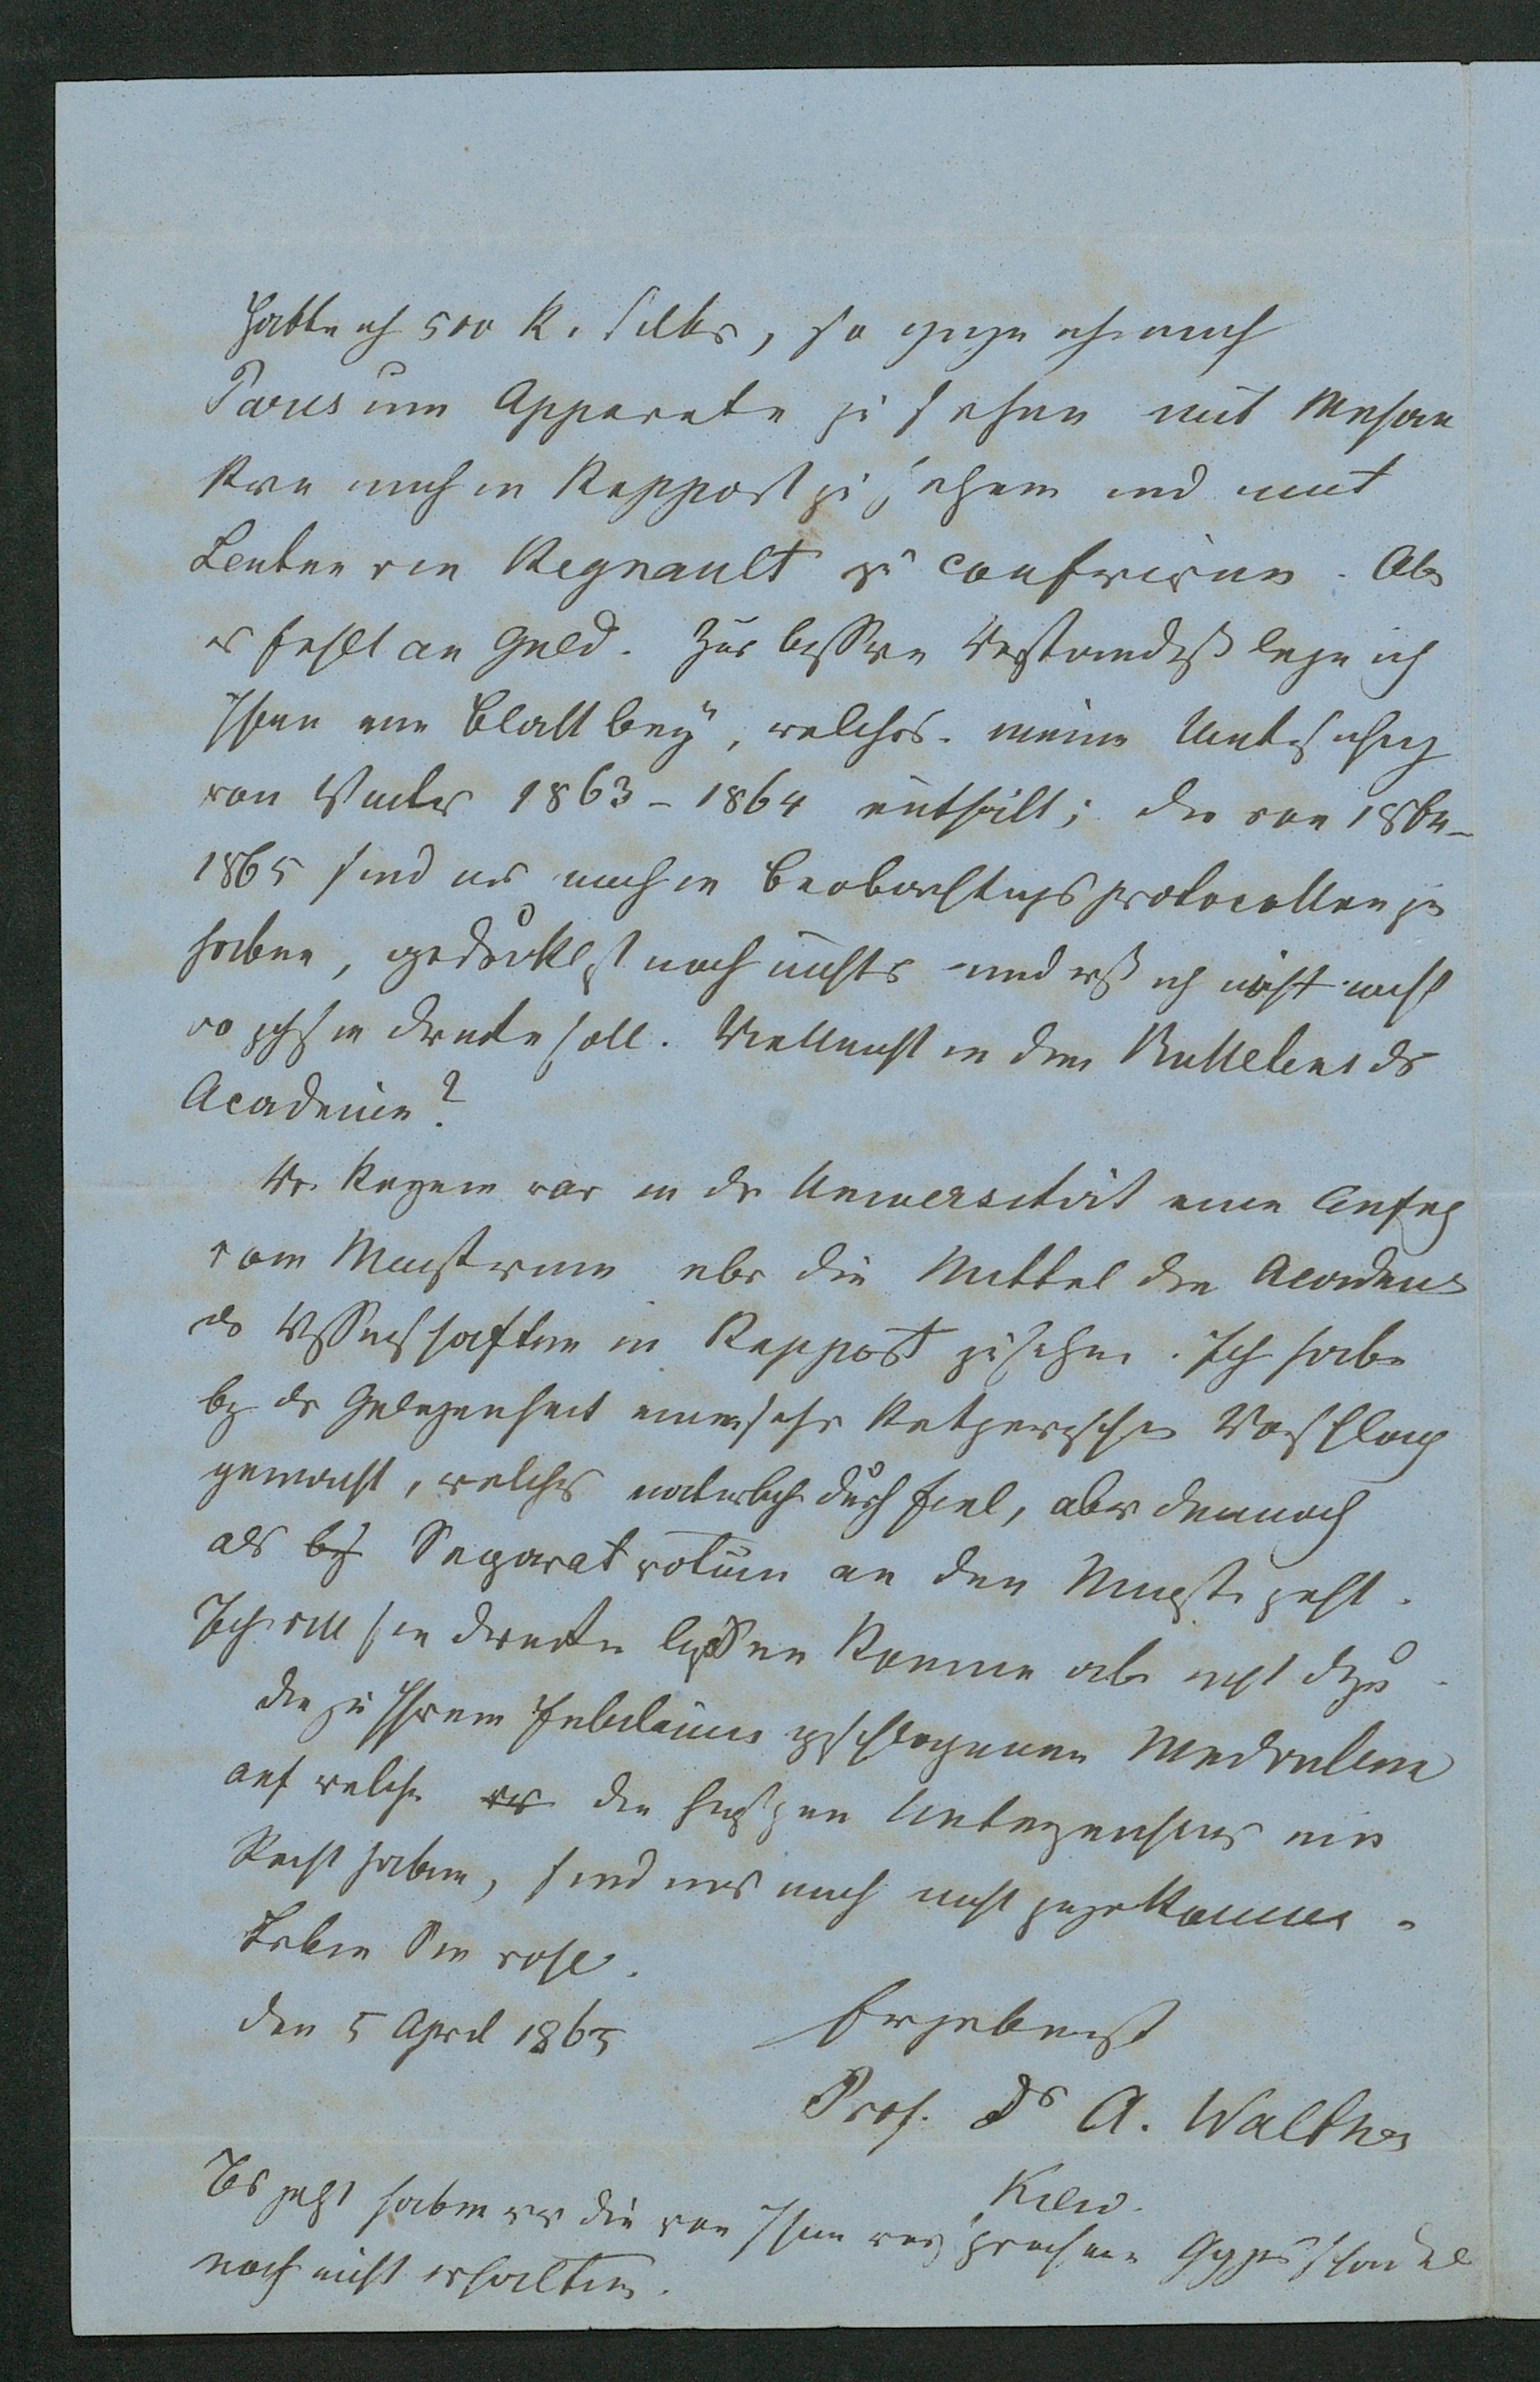 Hatte ich 500 R. Silber, so ginge ich nach
Paris um Apparate zu sehen mit Mechani
kern mich in Rapport zu setzen und mit
Leuten wie Regnault zu conferiren. Aber
es fehlt an Geld. Zur bessern Verständniß lege ich
Ihnen ein Blatt bey, welches meine Untersuchung
von Winter 1863 - 1864 enthält; die von 1864-
1865 sind nur noch in Beobachtungsprotocollen zu
haben, gedruckt ist noch nichts und weiß ich nicht recht
wo ich sie drucken soll. Vielleicht in den Bulletins der
Academie?
Vor Kurzem war in der Universität eine Anfrage
vom Ministerium über die Mittel die Academie
der Wissenschaften in Rapport zu setzen. Ich habe
bey der Gelegenheit einen sehr ketzerischen Vorschlag
gemacht, welcher naturlich durch fiel, aber dennoch
als bey Separatvotum an den Minister geht.
Ich will sie drucken lassen komme aber nicht dazu.
Die zu Ihrem Jubilaeum geschlagenen Medaillen
auf welche wir die hiesigen ein
Recht haben, sind uns noch nicht zugekommen.
Leben Sie wohl.
den 5 April 1865
Ergebenst
Prof. Dr A. Walther
Kiew.
Bis jetzt haben wir die von Ihnen versprochenen Gypsschädel
noch nicht erhalten.